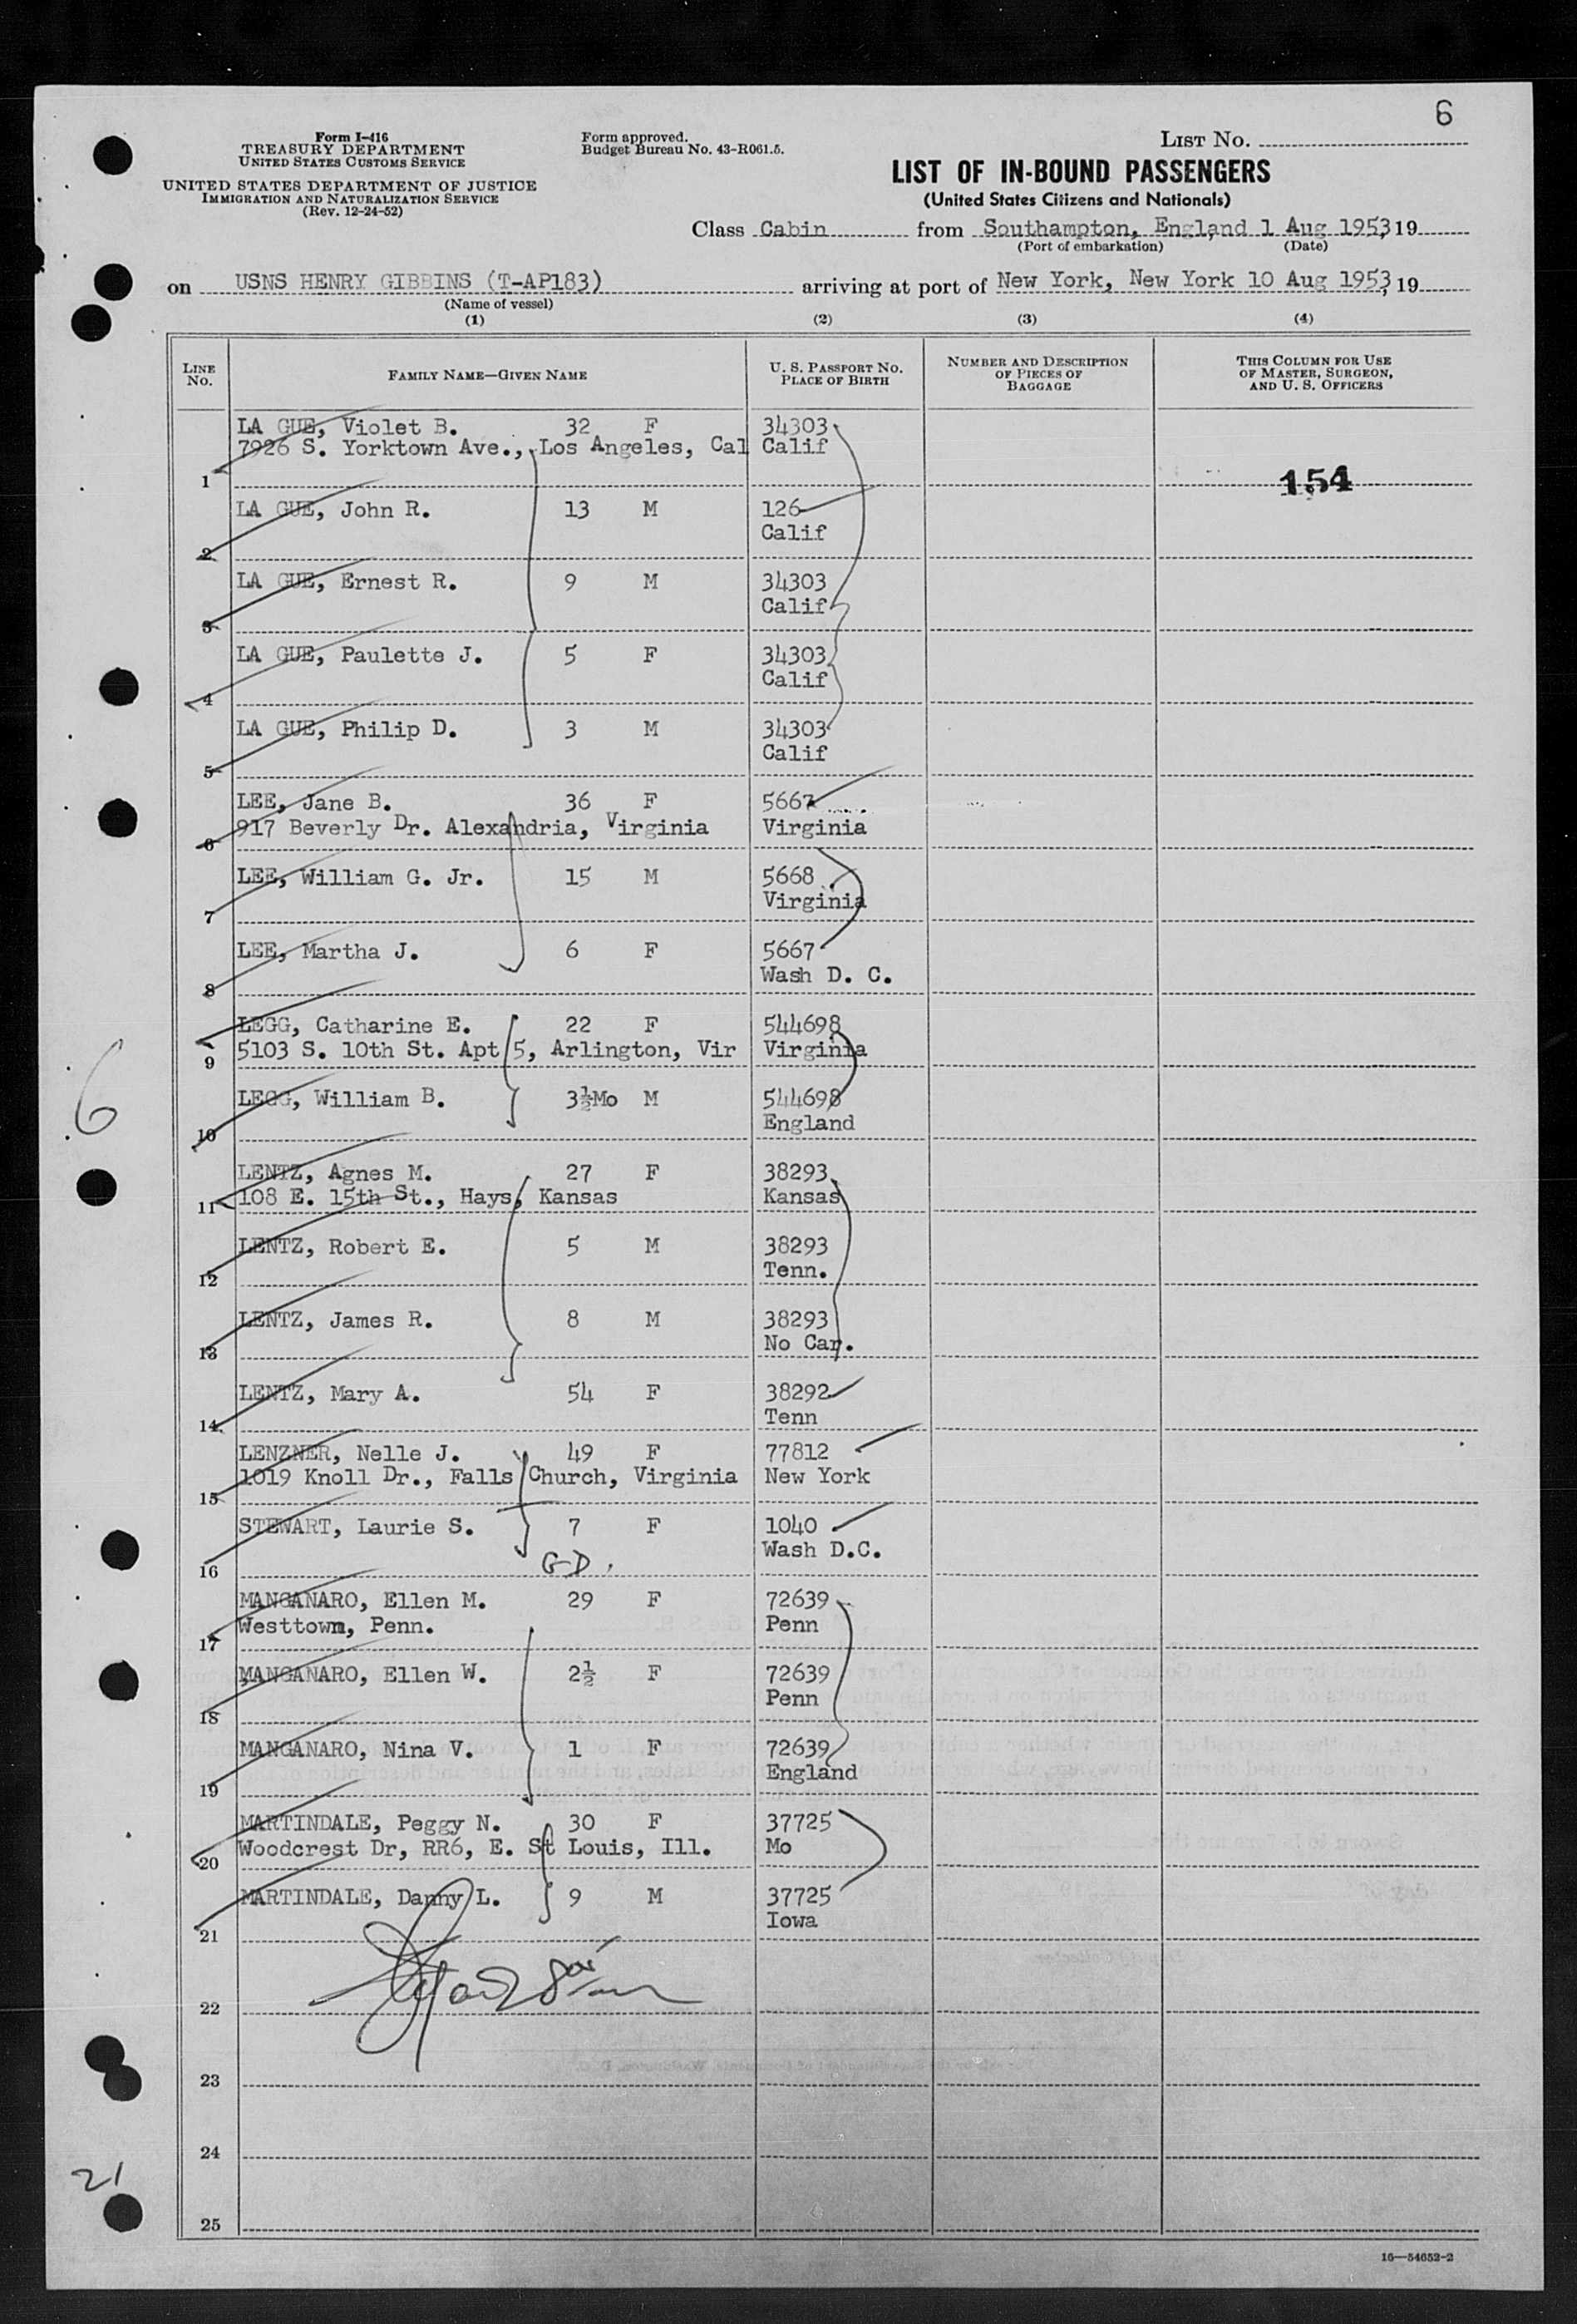 6
Form I-416
TREASURY DEPARTMENT
UNITED STATES CUSTOMS SERVICE
UNITED STATES DEPARTMENT OF JUSTICE
IMMIGRATION AND NATURALIZATION SERVICE
(Rev. 12-24-52)
Form approved.
Budget Bureau No. 43-R061.5.
LIST NO.
LIST OF IN-BOUND PASSENGERS
(United States Citizens and Nationals)
Class Cabin from Southampton, England 1 Aug 1953, 19
(Port of embarkation) (Date)
on USNS HENRY GIBBINS (T-AP183) arriving at port of New York, New York 10 Aug 1953, 19
(Name of vessel)
(1) (2) (3) (4)
LINE NO. FAMILY NAME—GIVEN NAME U. S. PASSPORT NO. PLACE OF BIRTH NUMBER AND DESCRIPTION OF PIECES OF BAGGAGE THIS COLUMN FOR USE OF MASTER, SURGEON, AND U. S. OFFICERS
LA GUE, Violet B. 32 F 34303
7926 S. Yorktown Ave., Los Angeles, Cal Calif
1 154
LA GUE, John R. 13 M 126
Calif
2
LA GUE, Ernest R. 9 M 34303
Calif
3
LA GUE, Paulette J. 5 F 34303
Calif
4
LA GUE, Philip D. 3 M 34303
Calif
5
LEE, Jane B. 36 F 5667
917 Beverly Dr. Alexandria, Virginia Virginia
6
LEE, William G. Jr. 15 M 5668
Virginia
7
LEE, Martha J. 6 F 5667
Wash D. C.
8
LEGG, Catharine E. 22 F 544698
5103 S. 10th St. Apt 5, Arlington, Vir Virginia
9
LEGG, William B. 3½Mo M 544698
England
10
6
LENTZ, Agnes M. 27 F 38293
108 E. 15th St., Hays, Kansas Kansas
11
LENTZ, Robert E. 5 M 38293
Tenn.
12
LENTZ, James R. 8 M 38293
No Car.
13
LENTZ, Mary A. 54 F 38292
Tenn
14
LENZNER, Nelle J. 49 F 77812
1019 Knoll Dr., Falls Church, Virginia New York
15
STEWART, Laurie S. 7 F 1040
Wash D.C.
16 GD.
MANGANARO, Ellen M. 29 F 72639
Westtown, Penn. Penn
17
MANGANARO, Ellen W. 2½ F 72639
Penn
18
MANGANARO, Nina V. 1 F 72639
England
19
MARTINDALE, Peggy N. 30 F 37725
Woodcrest Dr, RR6, E. St Louis, Ill. Mo
20
MARTINDALE, Danny L. 9 M 37725
Iowa
21
22
23
24
21
25
16—54652-2